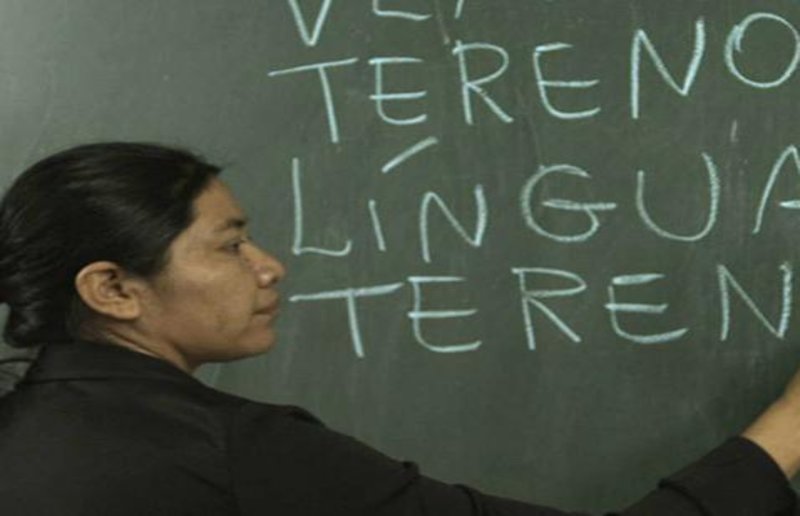 TERENO
LÍNGUA
TEREN